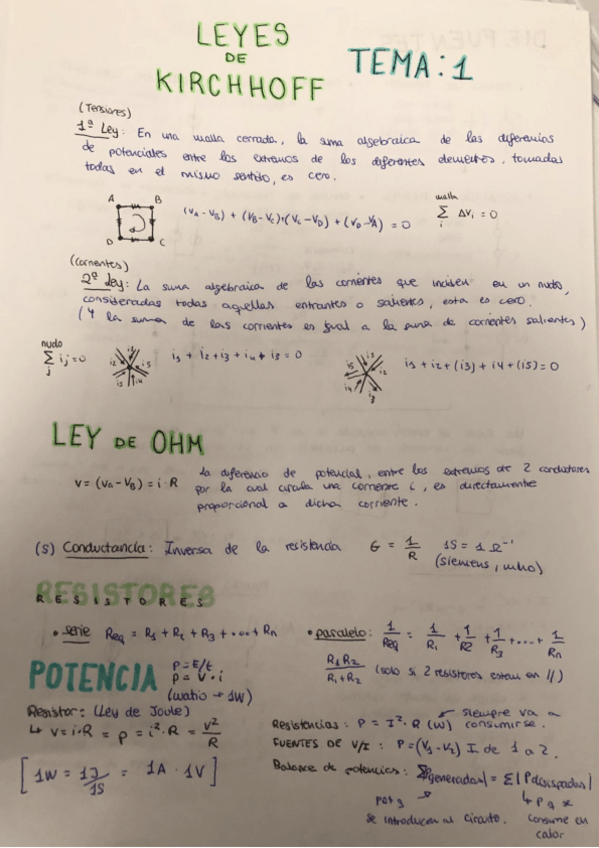 LEYES
DE
KIRCHHOFF
TEMA: 1
(Tensiones)
1ª Ley: En una malla cerrada, la suma algebraica de las diferencias
de potenciales entre los extremos de los diferentes elementos, tomadas
todas en el mismo sentido, es cero.
A B
D C
(VA - VB) + (VB - VC) + (VC - VD) + (VD - VA) = 0
malla
Σ ΔVi = 0
i
(Corrientes)
2ª Ley: La suma algebraica de las corrientes que inciden en un nudo,
consideradas todas aquellas entrantes o salientes, esta es cero.
(Y la suma de las corrientes es igual a la suma de corrientes salientes)
nudo
Σ ij = 0
j
i1 + i2 + i3 + i4 + i5 = 0
i1 + i2 + (i3) + i4 + (i5) = 0
LEY DE OHM
V = (VA - VB) = i · R
La diferencia de potencial, entre los extremos de 2 conductores
por la cual circula una corriente i, es directamente
proporcional a dicha corriente.
(S) Conductancia: Inversa de la resistencia G = 1/R 1S = 1 Ω⁻¹
(siemens, mho)
RESISTORES
RESISTORES
• serie Req = R1 + R2 + R3 + .... + Rn
• paralelo: 1/Req = 1/R1 + 1/R2 + 1/R3 + ... + 1/Rn
R1R2/R1+R2 (solo si 2 resistores estan en //)
POTENCIA
P = E/t
P = V · i
(watio → 1W)
Resistor: (Ley de Joule)
↳ V = i·R = P = i²·R = V²/R
[1W = 1J/1S = 1A · 1V]
Resistencias: P = I²·R (W) ← siempre va a
consumirse.
FUENTES DE V/I: P = (V1 - V2) I de 1 a 2.
Balance de potencias: Σ|Pgeneradas| = Σ|Pdisipadas|
se introducen al circuito.
↳ P q se
consume en
calor